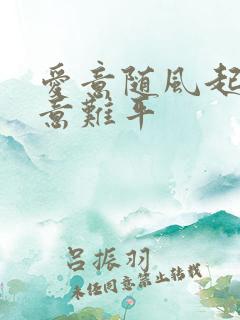 愛意随風起
意難平
呂振羽
未经同意禁止转载